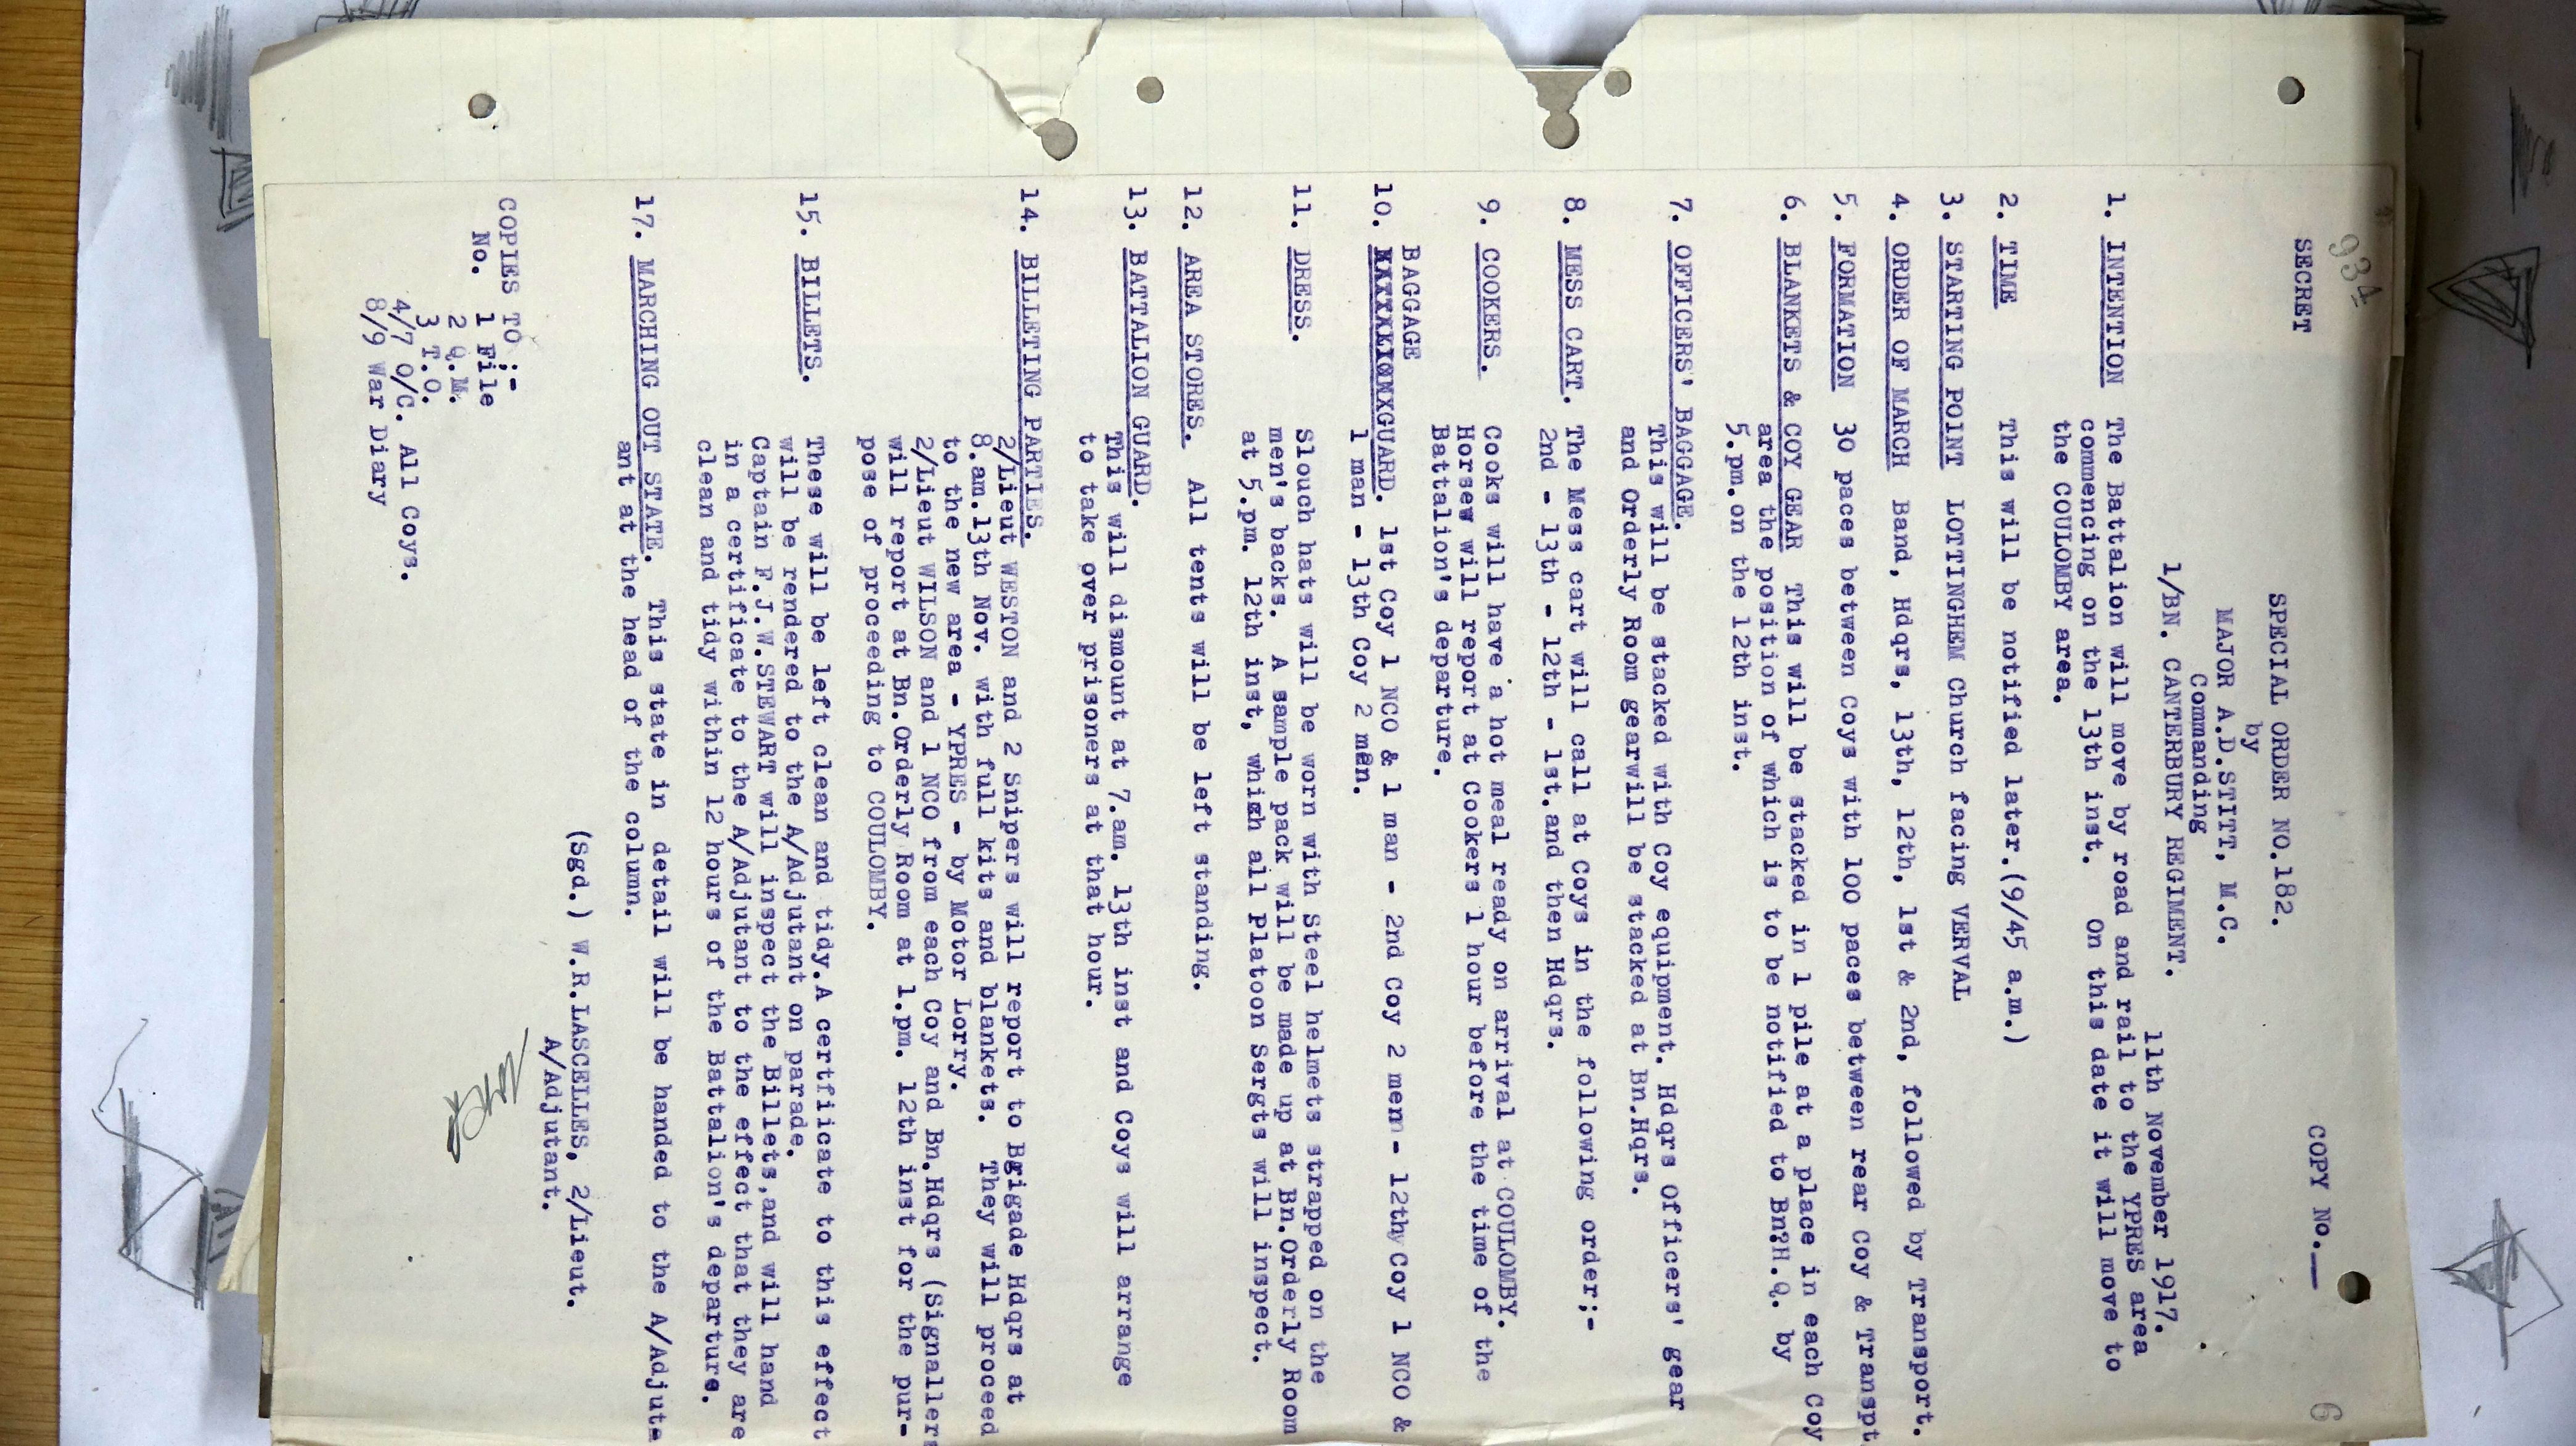 934
SECRET
COPY No.__
6
SPECIAL ORDER NO.182.
by
MAJOR A.D.STITT, M.C.
Commanding
1/BN. CANTERBURY REGIMENT.
11th November 1917.
1. INTENTION The Battalion will move by road and rail to the YPRES area
commencing on the 13th inst. On this date it will move to
the COULOMBY area.
2. TIME This will be notified later.(9/45 a.m.)
3. STARTING POINT LOTTINGHEM Church facing VERVAL
4. ORDER OF MARCH Band, Hdqrs, 13th, 12th, 1st & 2nd, followed by Transport.
5. FORMATION 30 paces between Coys with 100 paces between rear Coy & Transpt
6. BLANKETS & COY GEAR This will be stacked in 1 pile at a place in each Coy
area the position of which is to be notified to Bn?H.Q. by
5.pm.on the 12th inst.
7. OFFICERS' BAGGAGE.
This will be stacked with Coy equipment. Hdqrs Officers' gear
and Orderly Room gearwill be stacked at Bn.Hqrs.
8. MESS CART. The Mess cart will call at Coys in the following order;-
2nd - 13th - 12th - 1st.and then Hdqrs.
9. COOKERS. Cooks will have a hot meal ready on arrival at COULOMBY.
Horsew will report at Cookers 1 hour before the time of the
Battalion's departure.
BAGGAGE
10. GUARD. 1st Coy 1 NCO & 1 man - 2nd Coy 2 men- 12thy Coy 1 NCO &
1 man - 13th Coy 2 men.
11. DRESS. Slouch hats will be worn with Steel helmets strapped on the
men's backs. A sample pack will be made up at Bn.Orderly Room
at 5.pm. 12th inst, which all Platoon Sergts will inspect.
12. AREA STORES. All tents will be left standing.
13. BATTALION GUARD.
This will dismount at 7.am. 13th inst and Coys will arrange
to take over prisoners at that hour.
14. BILLETING PARTIES.
2/Lieut WESTON and 2 Snipers will report to Brigade Hdqrs at
8.am.13th Nov. with full kits and blankets. They will proceed
to the new area - YPRES - by Motor Lorry.
2/Lieut WILSON and 1 NCO from each Coy and Bn.Hdqrs (Signallers
will report at Bn.Orderly Room at 1.pm. 12th inst for the pur-
pose of proceeding to COULOMBY.
15. BILLETS. These will be left clean and tidy.A certificate to this effect
will be rendered to the A/Adjutant on parade.
Captain F.J.W.STEWART will inspect the Billets,and will hand
in a certificate to the A/Adjutant to the effect that they are
clean and tidy within 12 hours of the Battalion's departure.
17. MARCHING OUT STATE. This state in detail will be handed to the A/Adjute
ant at the head of the column.
(Sgd.) W.R.LASCELLES, 2/Lieut.
A/Adjutant.
COPIES TO ;-
No. 1 File
2 Q.M.
3 T.O.
4/7 O/C. All Coys.
8/9 War Diary